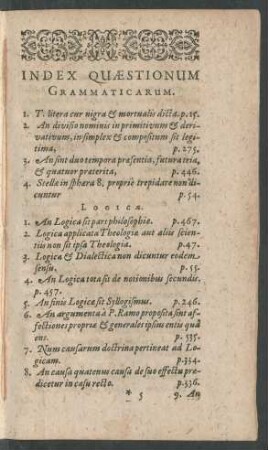 INDEX QUÆSTIONUM
GRAMMATICARUM.
1. T. litera cur nigra & mortualis dicta. p.15.
2. An divisio nominis in primitivum & deri-
vativum, in simplex & compositum sit legi-
tima, p. 275.
3. An sint duo tempora præsentia, futura tria,
& quatuor præterita, p. 446.
4. Stellæ in sphæra 8. propriè trepidare non di-
cuntur p. 54.
LOGICÆ.
1. An Logica sit pars philosophiæ. p. 467.
2. Logica applicata Theologiæ aut aliis scien-
tiis non sit ipsa Theologia. p. 47.
3. Logica & Dialectica non dicuntur eodem
sensu, p. 55.
4. An Logica tota sit de notionibus secundis.
p. 457.
5. An finis Logicæ sit Syllogismus. p. 246.
6. An argumenta à P. Ramo proposita sint af-
fectiones propriæ & generales ipsius entis quà
ens. p. 535.
7. Num causarum doctrina pertineat ad Lo-
gicam. p. 334.
8. An causa quatenus causa de suo effectu præ-
dicetur in casu recto. p. 536.
* 5 9. An